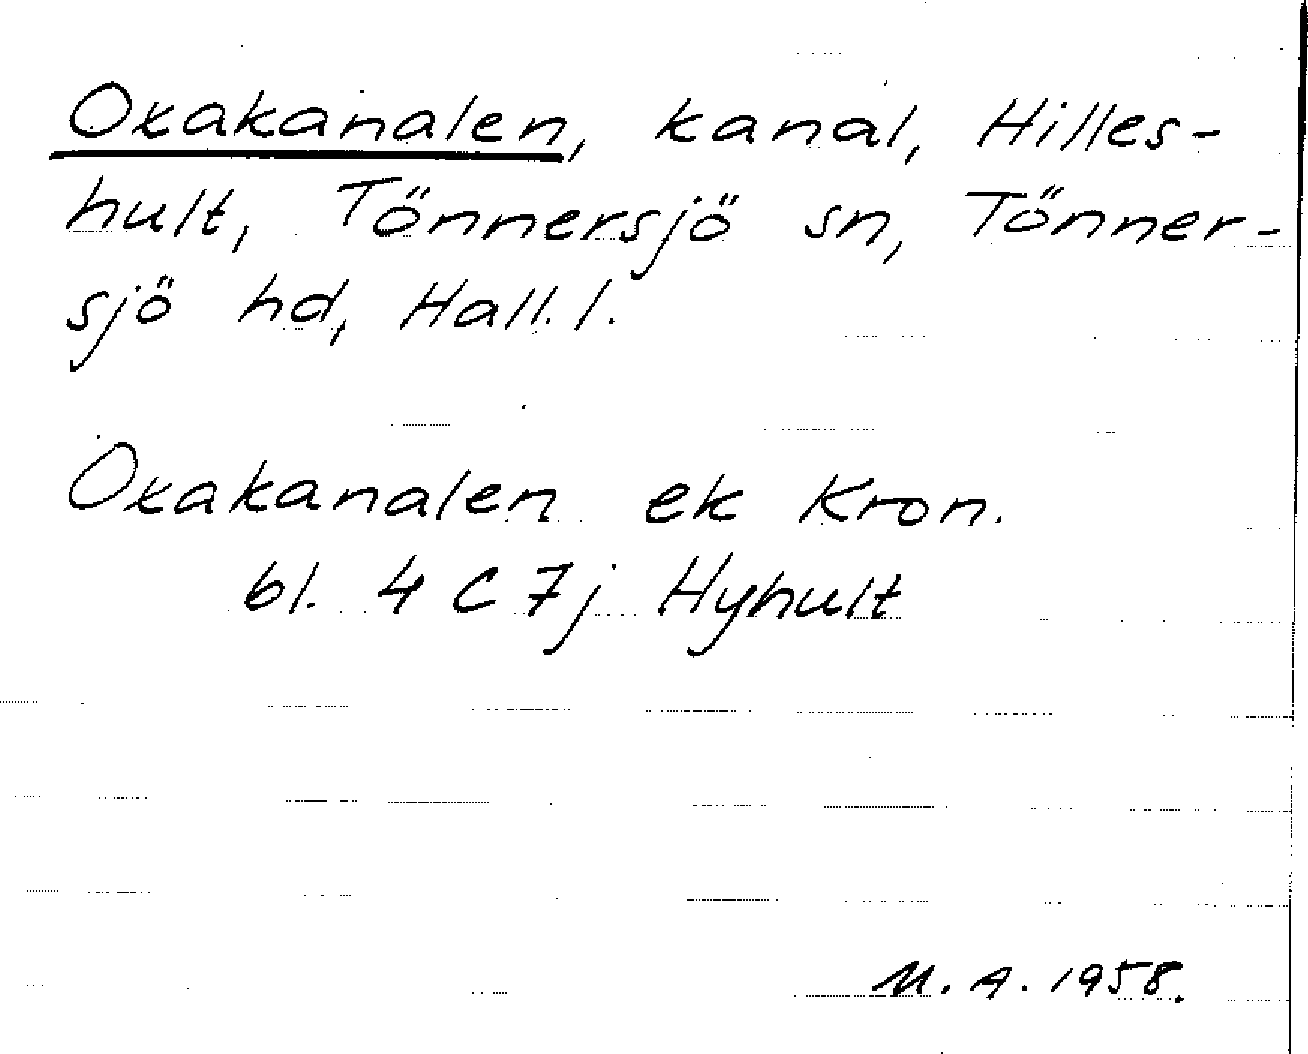 Oxakanalen, kanal, Hilles-
hult, Tönnersjö sn, Tönner-
sjö hd, Hall. l.
Oxakanalen ek Kron.
bl. 4 C 7j Hyhult
M. A. 1958.